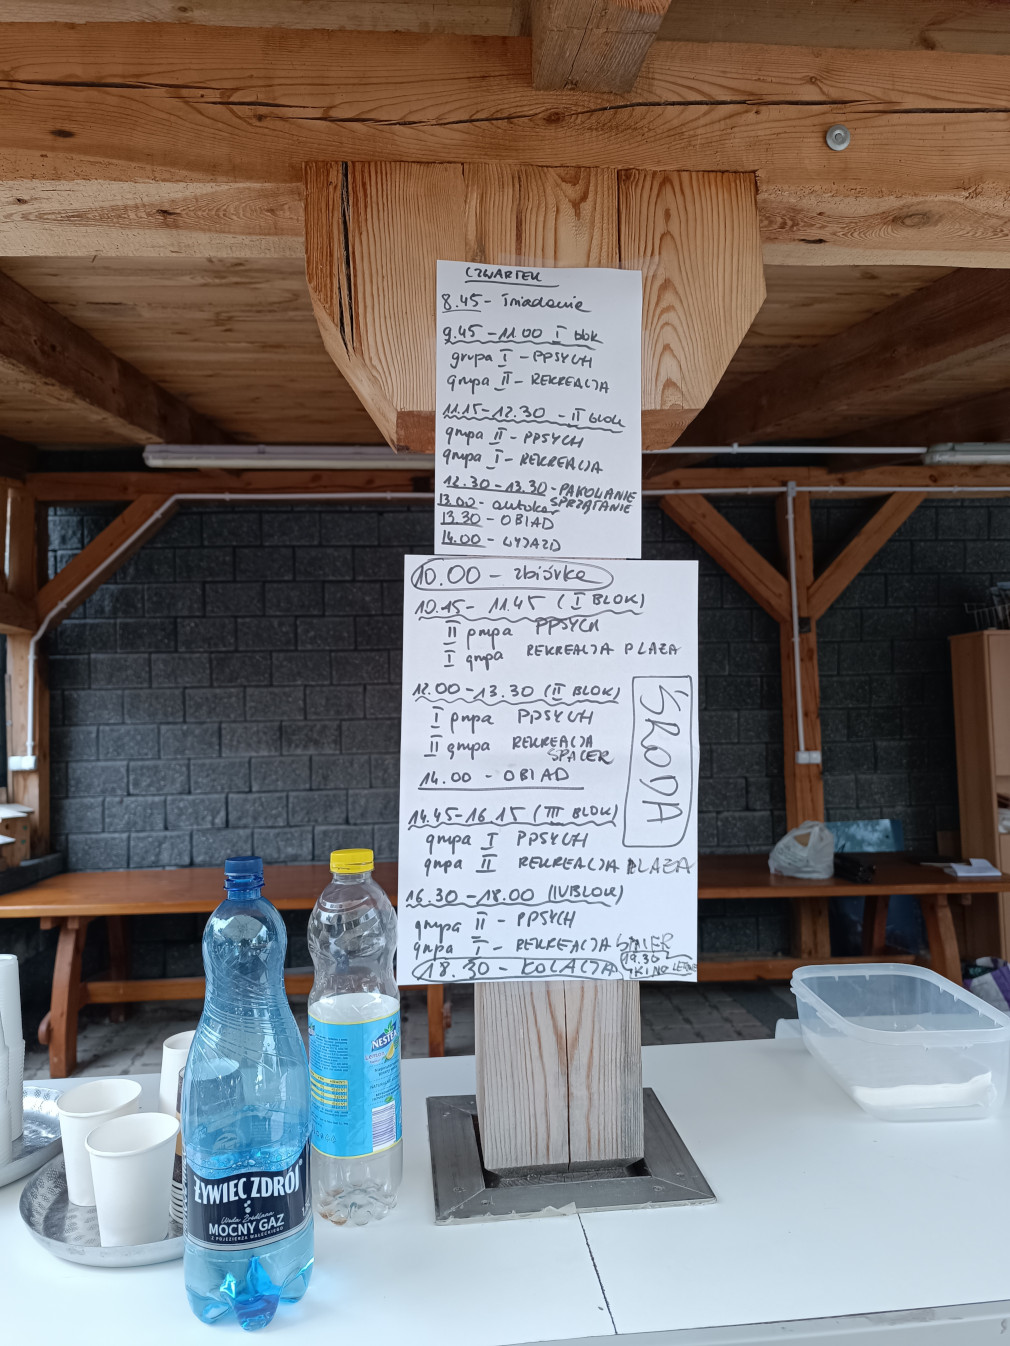 CZWARTEK
8.45 - śniadanie
9.45 - 11.00 I blok
grupa I - PPSYCH
grupa II - REKREACJA
11.15 - 12.30 - II blok
grupa II - PPSYCH
grupa I - REKREACJA
12.30 - 13.30 - PAKOWANIE
SPRZĄTANIE
13.00 - autokar
13.30 - OBIAD
14.00 - WYJAZD
10.00 - zbiórka
10.15 - 11.45 (I BLOK)
II grupa PPSYCH
I grupa REKREACJA PLAŻA
12.00 - 13.30 (II BLOK)
I grupa PPSYCH
II grupa REKREACJA
SPACER
14.00 - OBIAD
ŚRODA
14.45 - 16.15 (III BLOK)
grupa I PPSYCH
grupa II REKREACJA PLAŻA
16.30 - 18.00 (IV BLOK)
grupa II - PPSYCH
grupa I - REKREACJA SPACER
18.30 - KOLACJA
19.30
KINO LETNIE
NESTEA
ŻYWIEC ZDRÓJ
Woda Źródlana
MOCNY GAZ
Z POJEZIERZA WAŁECKIEGO